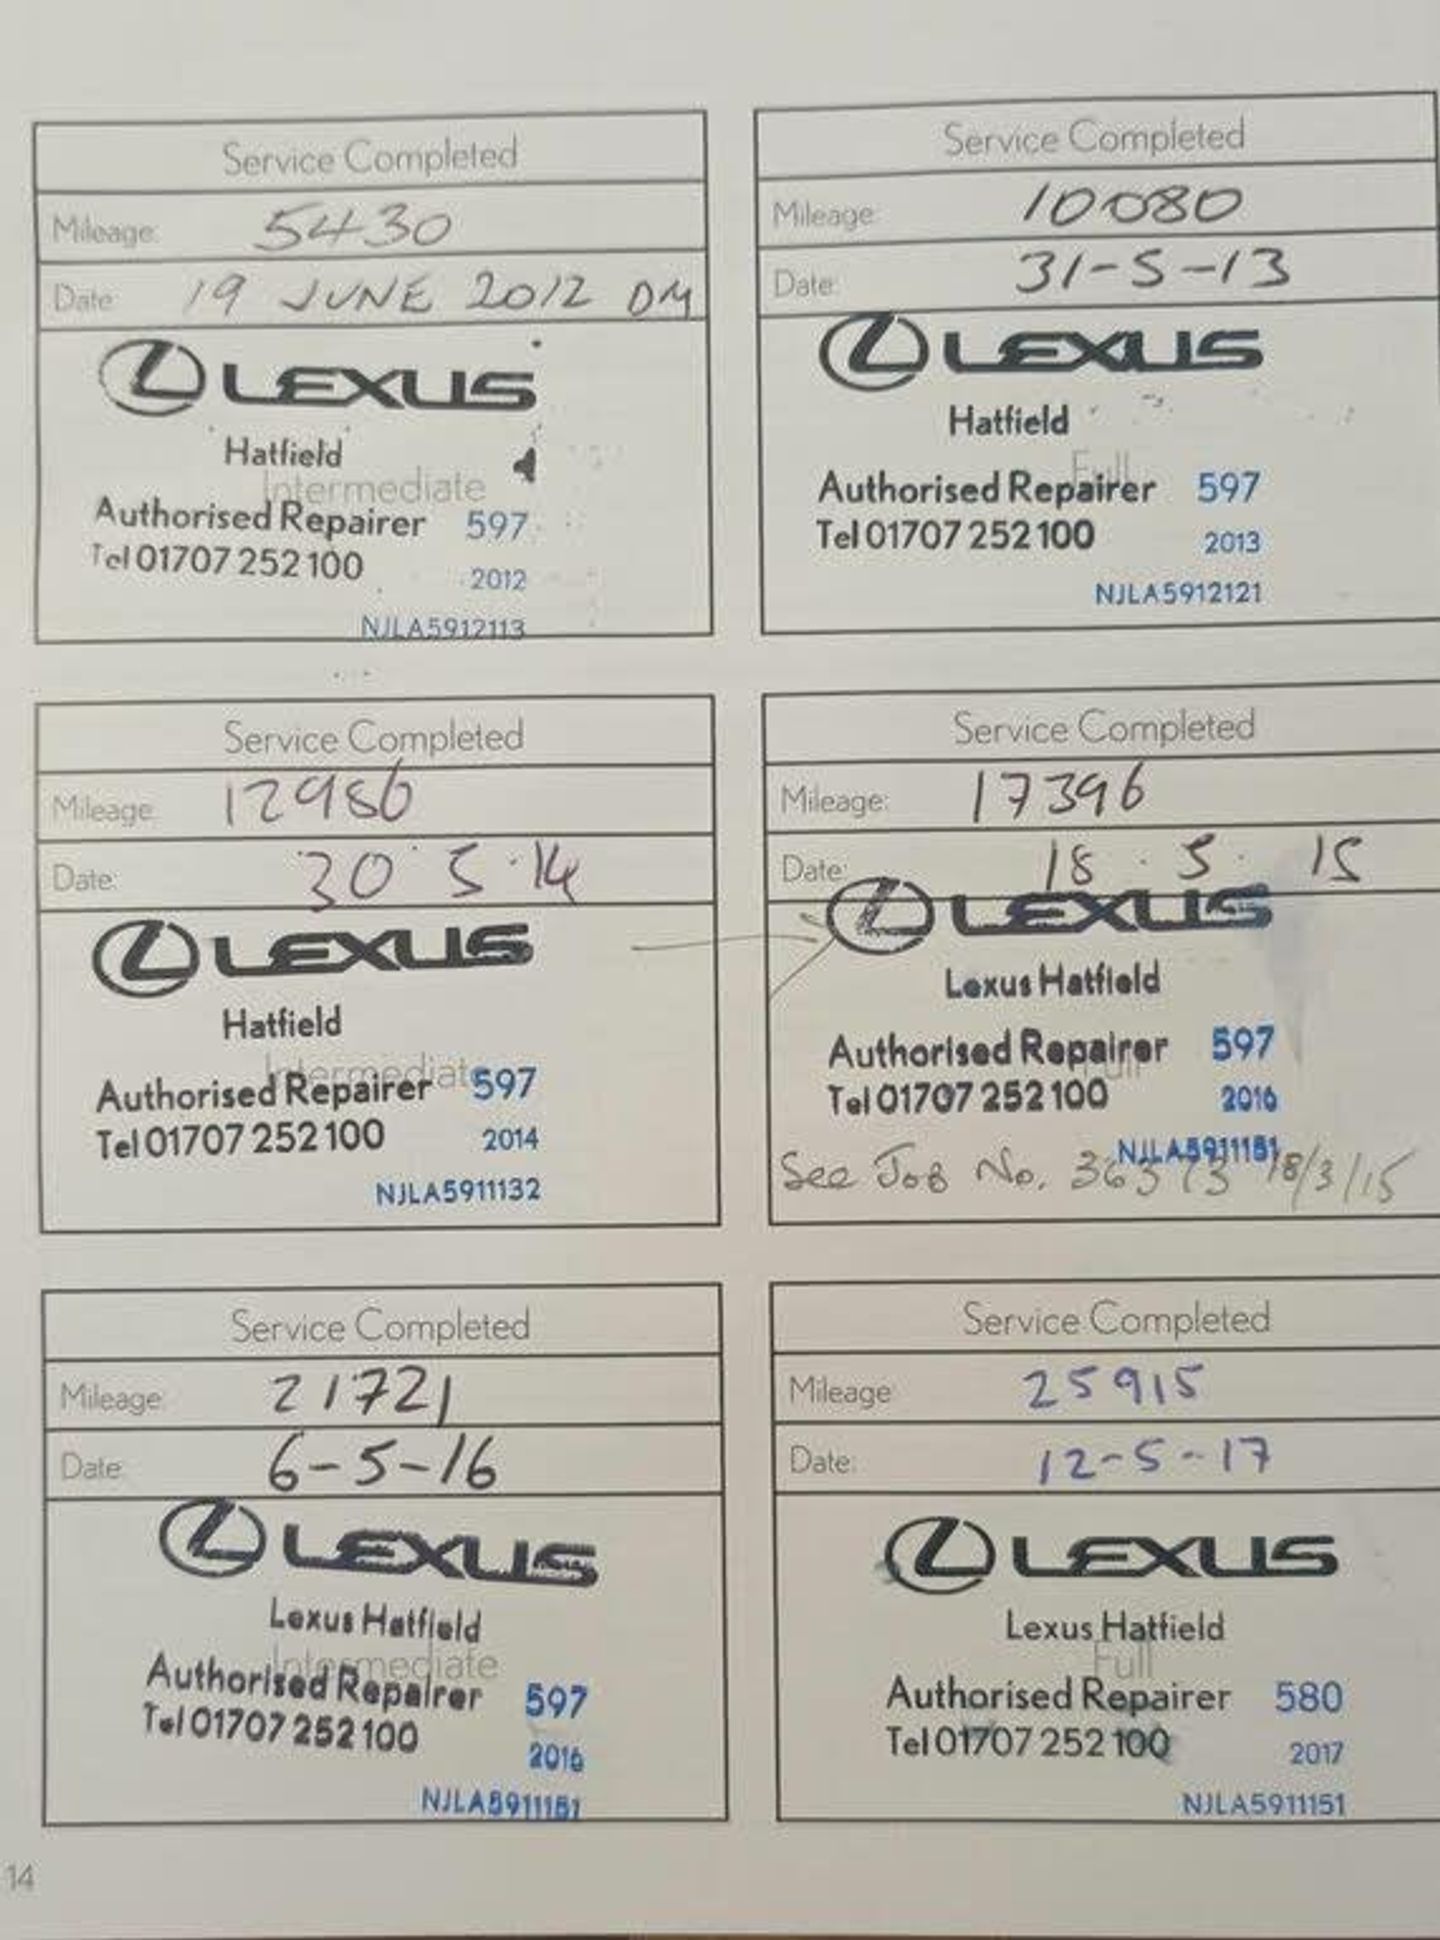 Service Completed
Mileage: 5430
Date: 19 JUNE 2012 DM
LEXUS
Hatfield
Intermediate
Authorised Repairer 597
Tel 01707 252 100
2012
NJLA5912113
Service Completed
Mileage: 10080
Date: 31-5-13
LEXUS
Hatfield
Full
Authorised Repairer 597
Tel 01707 252 100
2013
NJLA5912121
Service Completed
Mileage: 12986
Date: 30 5 14
LEXUS
Hatfield
Intermediate
Authorised Repairer 597
Tel 01707 252 100
2014
NJLA5911132
Service Completed
Mileage: 17396
Date: 18 . 3 . 15
LEXUS
Lexus Hatfield
Authorised Repairer 597
Full
Tel 01707 252 100
2016
NJLA5911151
See Job No. 36373 18/3/15
Service Completed
Mileage: 21721
Date: 6-5-16
LEXUS
Lexus Hatfield
Intermediate
Authorised Repairer 597
Tel 01707 252 100
2016
NJLA5911151
Service Completed
Mileage: 25915
Date: 12-5-17
LEXUS
Lexus Hatfield
Full
Authorised Repairer 580
Tel 01707 252 100
2017
NJLA5911151
14